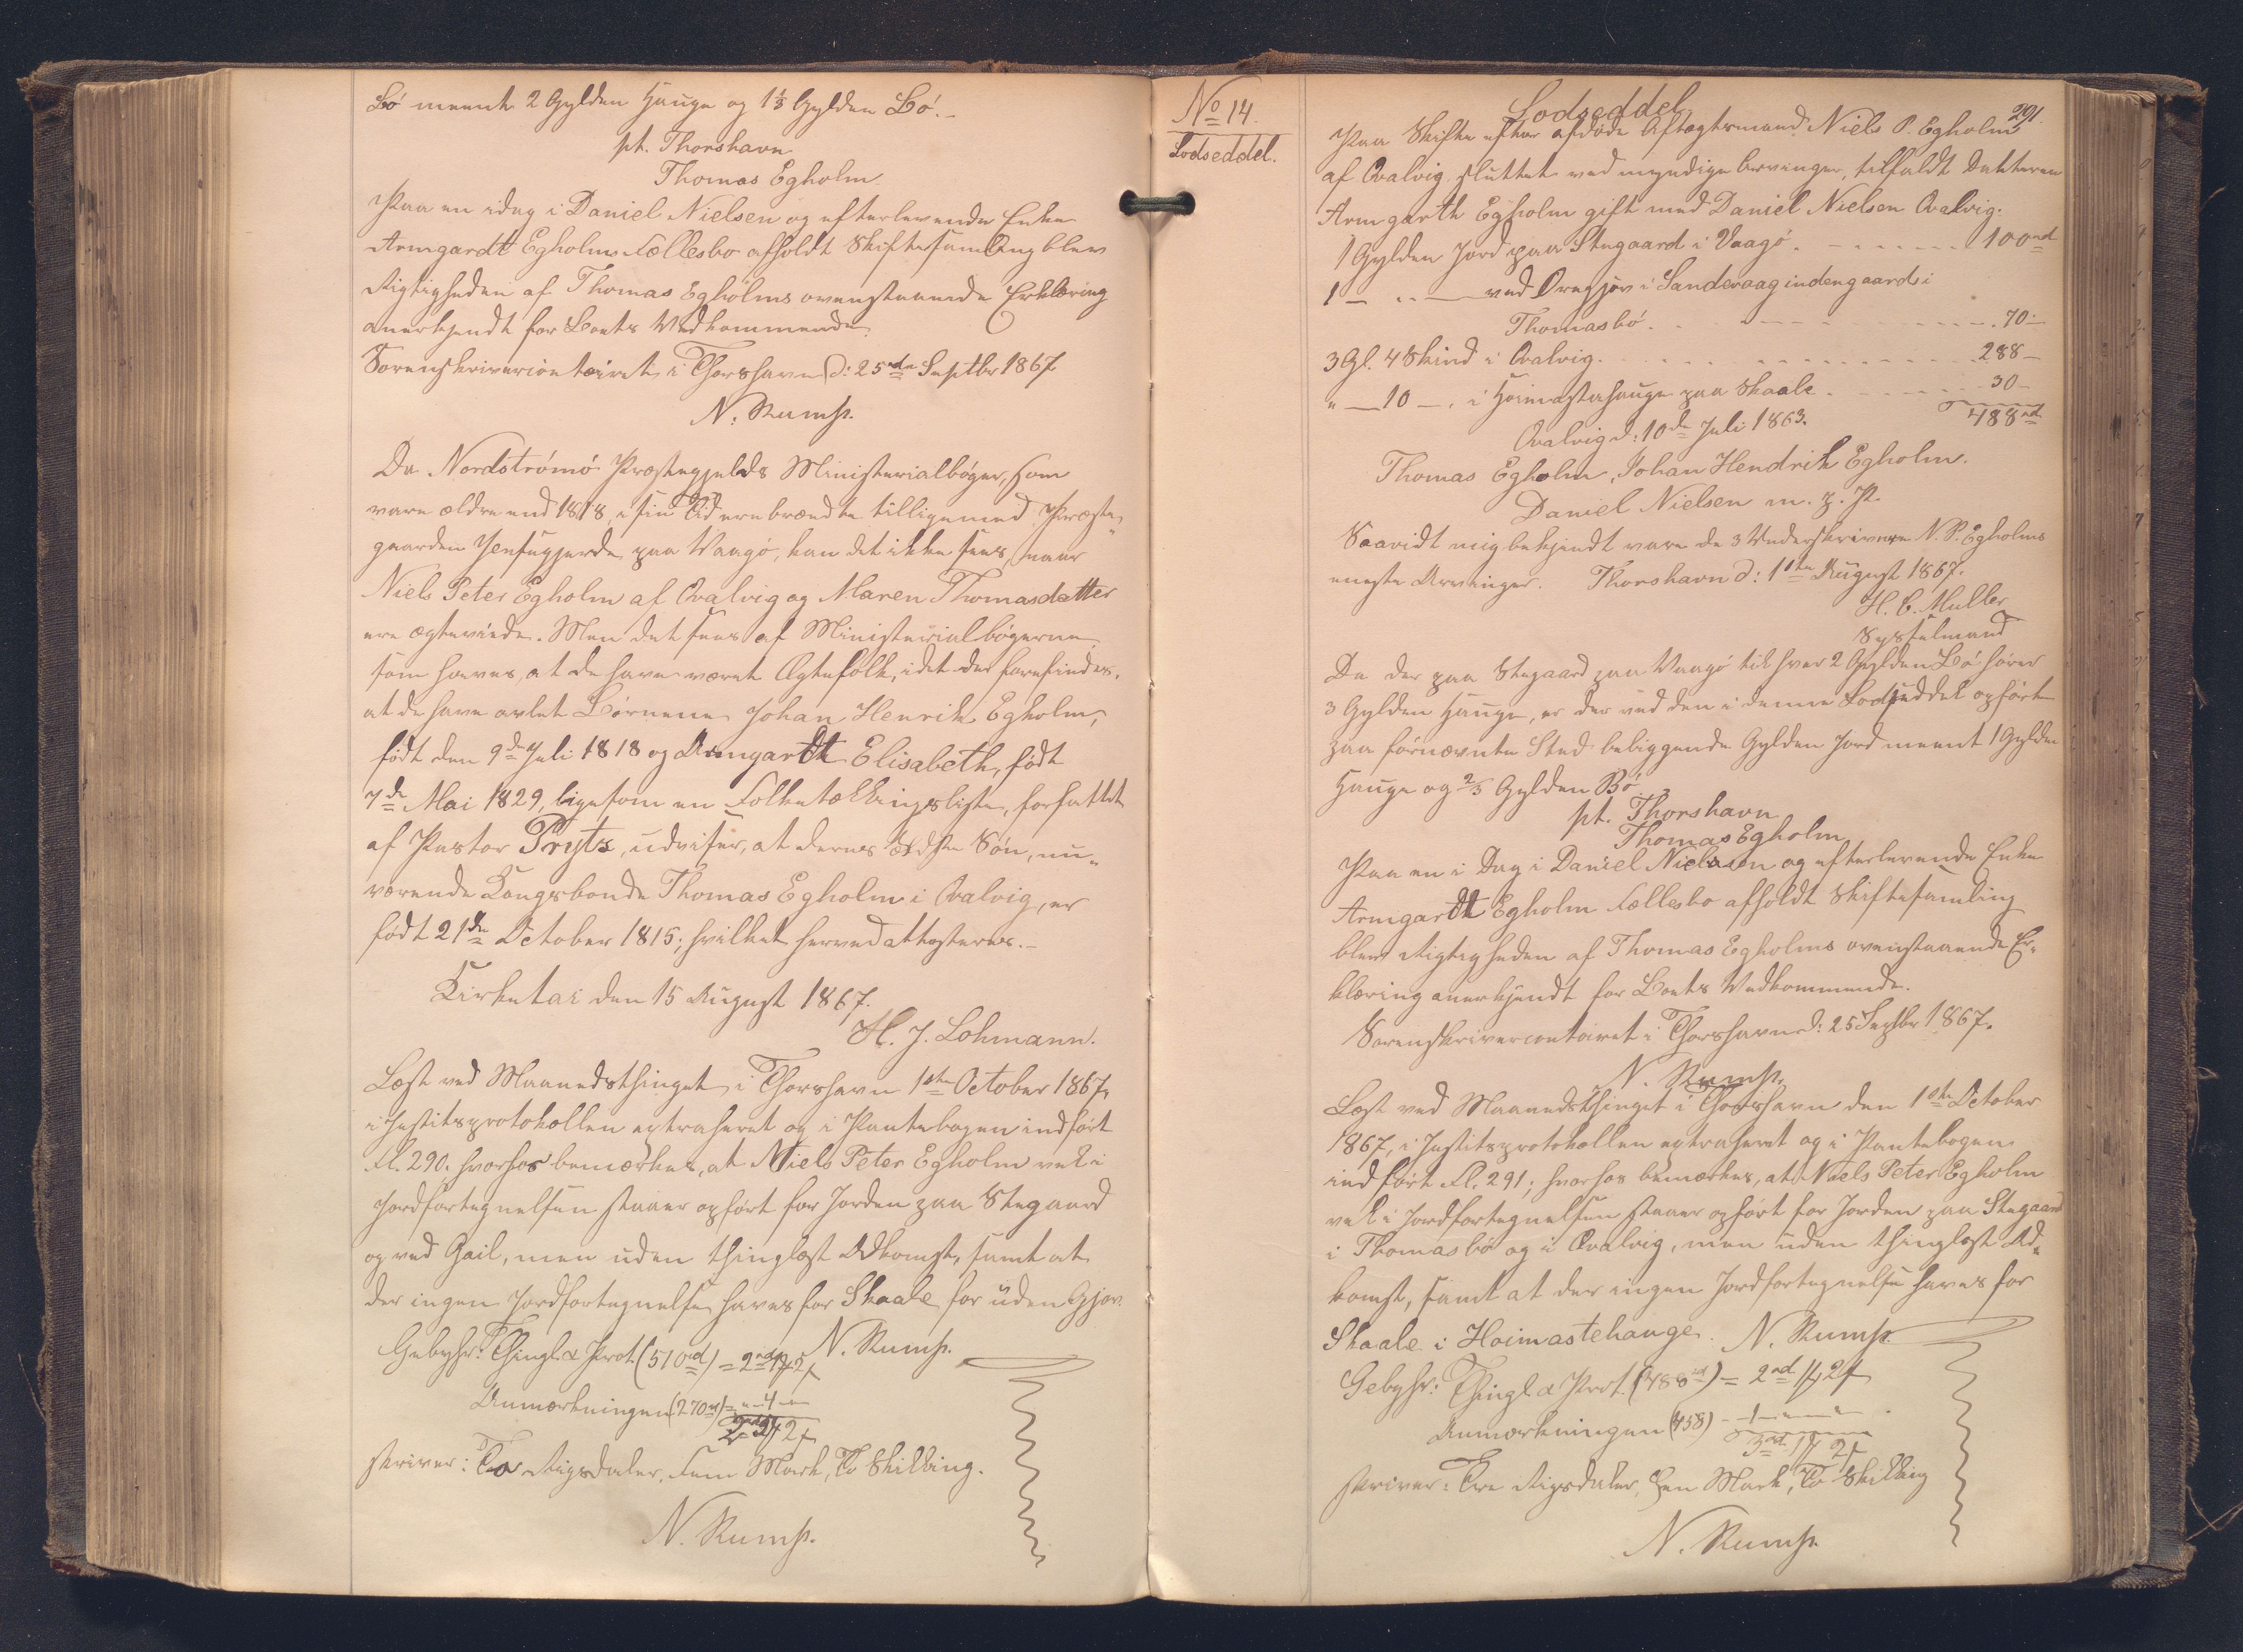 Bø meent 2 Gylden Hauge og 1⅓ Gylden Bø.
pt. Thorshavn
Thomas Egholm
Paa en idag i Daniel Nielsen og efterlevende Enke
Armgardt Egholms Fællesbo afholdt Skiftesamling blev
Rigtigheden af Thomas Egholms ovenstaaende Erklæring
anerkjendt for Boets Vedkommende
Sorenskrivericontoiret i Thorshavn d: 25de Septbr 1867
N. Rump.
Da Nordstrømø Præstegjelds Ministerialbøger, som
vare ældre end 1818, i sin Tid ere brændte tilligemed Præste„
gaarden Jensugjerde paa Vaagø, kan det ikke sees, naar
Niels Peter Egholm af Qvalvig og Maren Thomasdatter
ere ægteviede. Men det sees af Ministerialbøgerne
som haves, at de have været Ægtefolk, idet der forefindes,
at de have avlet Børnene Johan Henrik Egholm,
født den 9de Juli 1818 og Armgardt Elisabeth, født
7de Mai 1829, ligesom en Folketællingsliste, forfattet
af Pastor Prytz, udviser, at deres ældste Søn, nu„
værende Kongsbonde Thomas Egholm i Qvalvig, er
født 21de October 1815; hvilket herved attesteres.
Kirketai den 15 August 1867.
H. J. Lohmann.
Læst ved Maanedsthinget i Thorshavn 1ste October 1867,
i Justitsprotokollen extraheret og i Pantebogen indført
Fl. 290, hvorhos bemærkes, at Niels Peter Egholm vel i
Jordfortegnelsen staaer opført for Jorden paa Stegaard
og ved Gail, men uden thinglæst Adkomst, samt at
der ingen Jordfortegnelse haves for Skaale for uden Gjov.
Gebyhr: Thingl & Prot. (510rd) = 2rd 1 2
N. Rump.
Anmærkningen (270rd) = " 4 "
2rd 5 2
skriver: To Rigsdaler, Fem Mark, To Skilling.
N. Rump.
No 14.
Lodseddel.
291.
Lodseddel
Paa Skifte efter afdøde Aftægtsmand Niels P. Egholm
af Qvalvig sluttet ved myndige Arvinger, tilfaldt Datteren
Armgarth Egholm gift med Daniel Nielsen Qvalvig:
1 Gylden Jord paa Stegaard i Vaagø. 100rd
1 — " — ved Øregjov i Sandevaag indengaards i
Thomasbø. 70 —
3 Gl. 4 Skind i Qvalvig. 288 —
" — 10 — i Heimastahauge paa Skaale. 30 —
488rd
Qvalvig d: 10de Juli 1863.
Thomas Egholm, Johan Hendrik Egholm.
Daniel Nielsen m. p. P.
Saavidt mig bekjendt vare de 3 Underskrivere N. P. Egholms
eneste Arvinger. Thorshavn d: 1ste August 1867.
H. C. Müller
Sysselmand
Da der paa Stegaard paa Vaagø til hver 2 Gylden Bø hører
3 Gylden Hauge, er der ved den i denne Lodseddel opførte
paa førnævnte Sted beliggende Gylden Jord meent 1 Gylden
Hauge og ⅔ Gylden Bø.
pt. Thorshavn
Thomas Egholm
Paa en i Dag i Daniel Nielsen og efterlevende Enke
Armgardt Egholm Fællesbo afholdt Skiftesamling
blev Rigtigheden af Thomas Egholms ovenstaaende Er„
klæring anerkjendt for Boets Vedkommende.
Sorenskrivercontoiret i Thorshavn d: 25 Septbr 1867.
N. Rump.
Læst ved Maanedsthinget i Thorshavn den 1ste October
1867, i Justitsprotokollen extraheret og i Pantebogen
indført Fl. 291; hvorhos bemærkes, at Niels Peter Egholm
vel i Jordfortegnelsen staaer opført for Jorden paa Stegaard
i Thomasbø og i Qvalvig, men uden thinglæst Ad„
komst, samt at der ingen Jordfortegnelse haves for
Skaale i Hoimastehauge. N. Rump
Gebyhr: Thingl & Prot. (488rd) = 2rd 1 2
Anmærkningen (458) - 1 — " — "
3rd 1 2
skriver: Tre Rigsdaler, Een Mark, To Skilling
N. Rump.